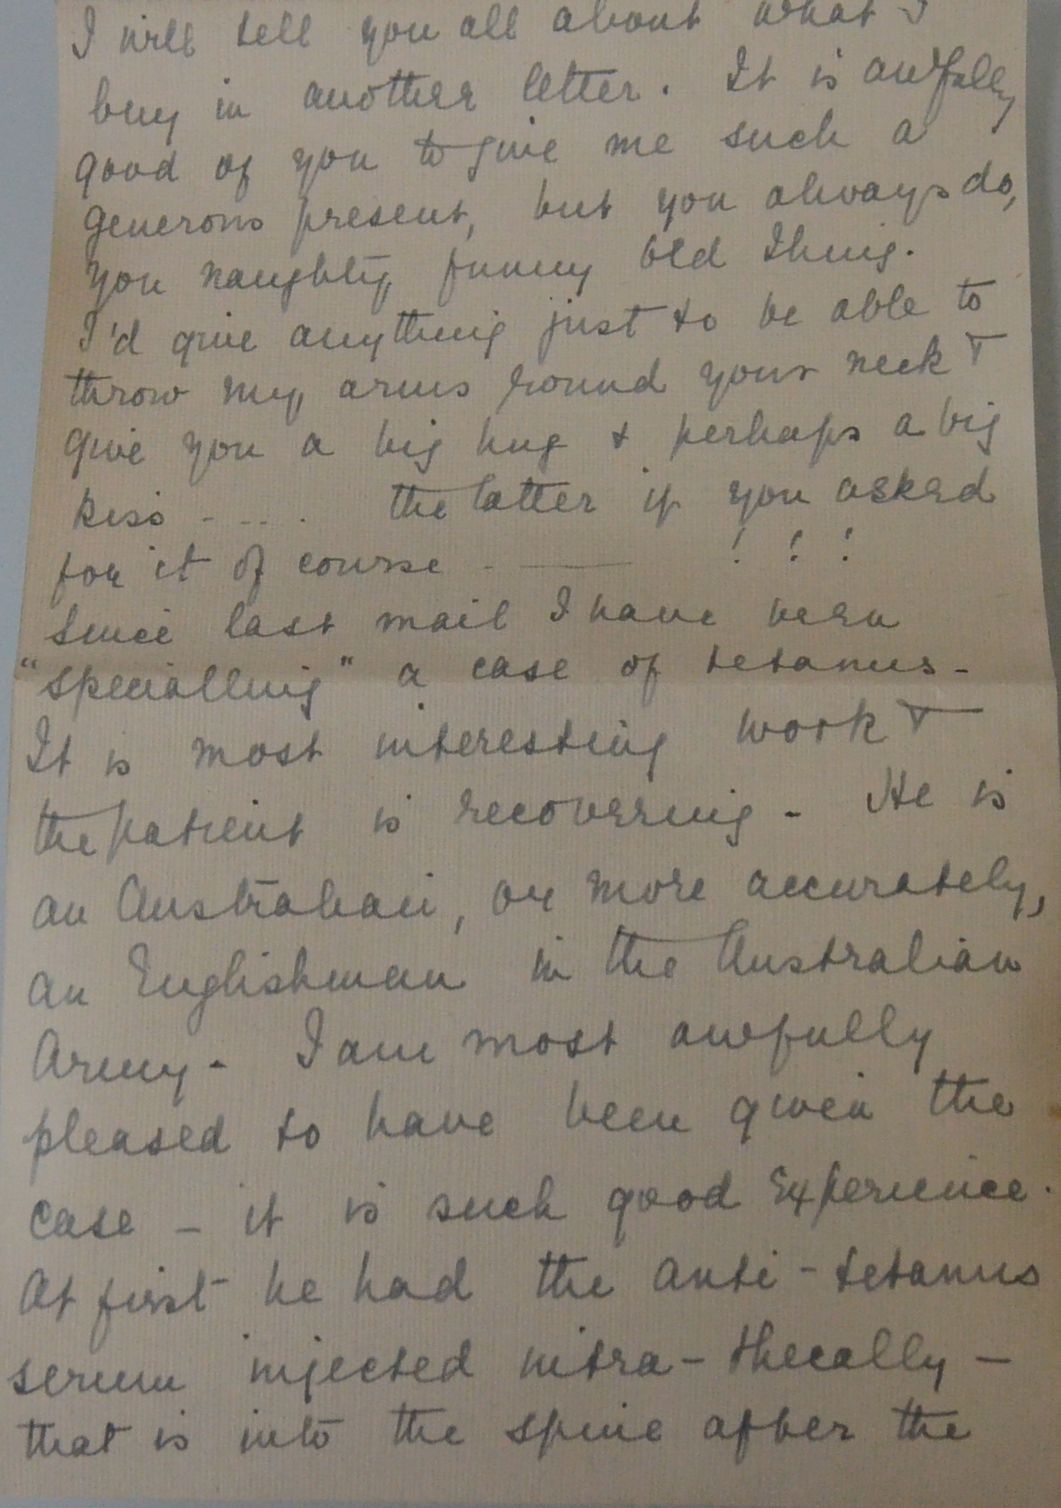 I will tell you all about what I
buy in another letter. It is awfully
good of you to give me such a
generous present, but you always do,
you naughty funny old thing.
I'd give anything just to be able to
throw my arms round your neck &
give you a big hug & perhaps a big
kiss - ... the latter if you asked
for it of course - — ! ! !
Since last mail I have been
"specialling" a case of tetanus -
It is most interesting work &
the patient is recovering - He is
an Australian, or more accurately,
an Englishman in the Australian
Army - I am most awfully
pleased to have been given the
case - it is such good experience.
At first he had the anti-tetanus
serum injected intra-thecally -
that is into the spine after the